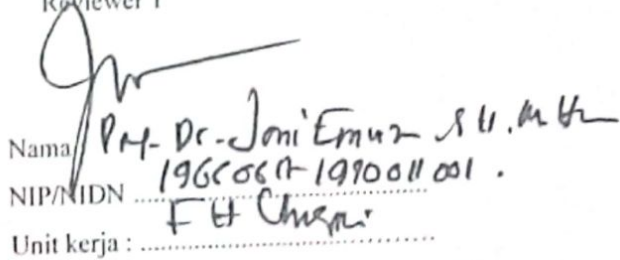 Reviewer 1
Nama Prof. Dr. Joni Emirzon SH. M.Hum
NIP/NIDN 1966061719900011001.
Unit kerja : FH Unsri